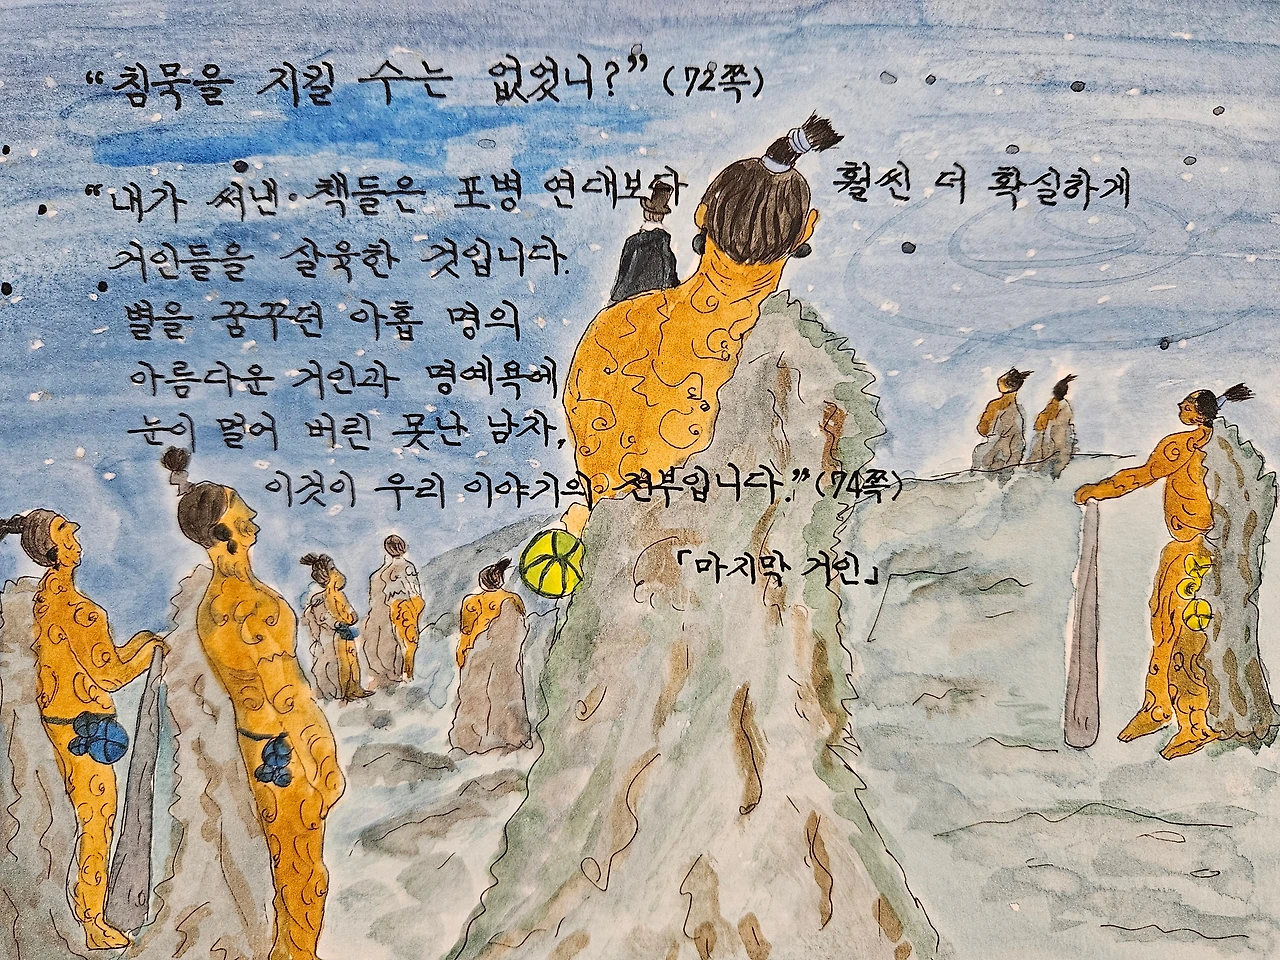 “침묵을 지킬 수는 없었니?” (72쪽)
“내가 써낸 책들은 포병 연대보다 훨씬 더 확실하게
거인들을 살육한 것입니다.
별을 꿈꾸던 아홉 명의
아름다운 거인과 명예욕에
눈이 멀어 버린 못난 남자,
이것이 우리 이야기의 전부입니다.” (74쪽)
「마지막 거인」